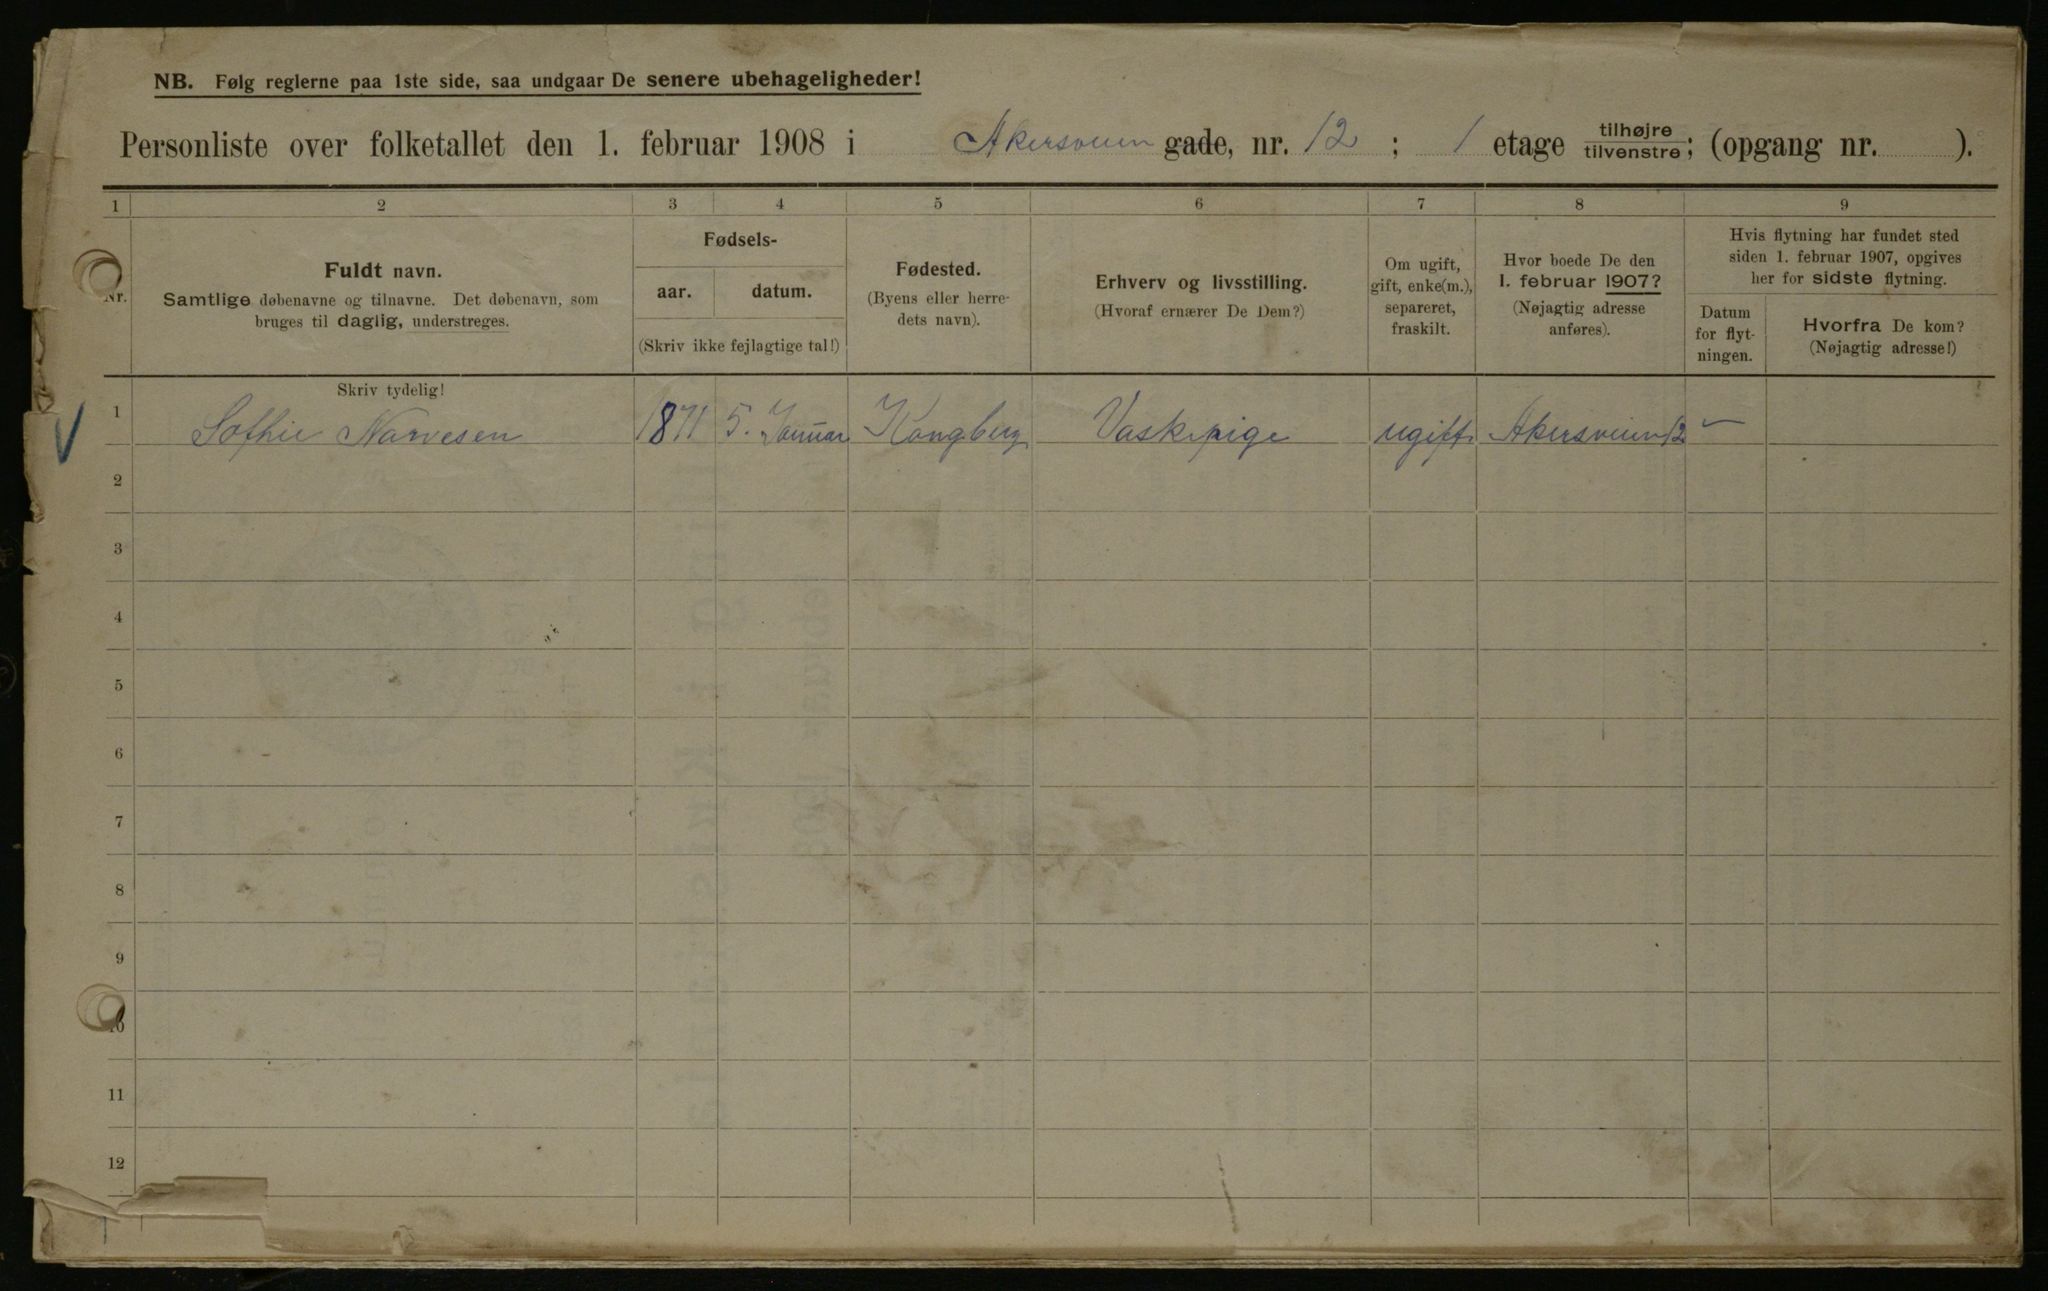 NB. Følg reglerne paa 1ste side, saa undgaar De senere ubehageligheder!
Personliste over folketallet den 1. februar 1908 i Akersveien gade, nr. 12 ; 1 etage tilhøjre tilvenstre; (opgang nr. ).
1 2 3 4 5 6 7 8 9
Nr.
Fuldt navn.
Samtlige døbenavne og tilnavne. Det døbenavn, som
bruges til daglig, understreges.
Fødsels-
aar. datum.
(Skriv ikke fejlagtige tal!)
Fødested.
(Byens eller herre-
dets navn).
Erhverv og livsstilling.
(Hvoraf ernærer De Dem?)
Om ugift,
gift, enke(m.),
separeret,
fraskilt.
Hvor boede De den
1. februar 1907?
(Nøjagtig adresse
anføres).
Hvis flytning har fundet sted
siden 1. februar 1907, opgives
her for sidste flytning.
Datum
for flyt-
ningen.
Hvorfra De kom?
(Nøjagtig adresse!)
Skriv tydelig!
1 Sofhie Narvesen 1871 5. Januar Kongberg Vaskepige ugift Akersveien 12 –
2
3
4
5
6
7
8
9
10
11
12